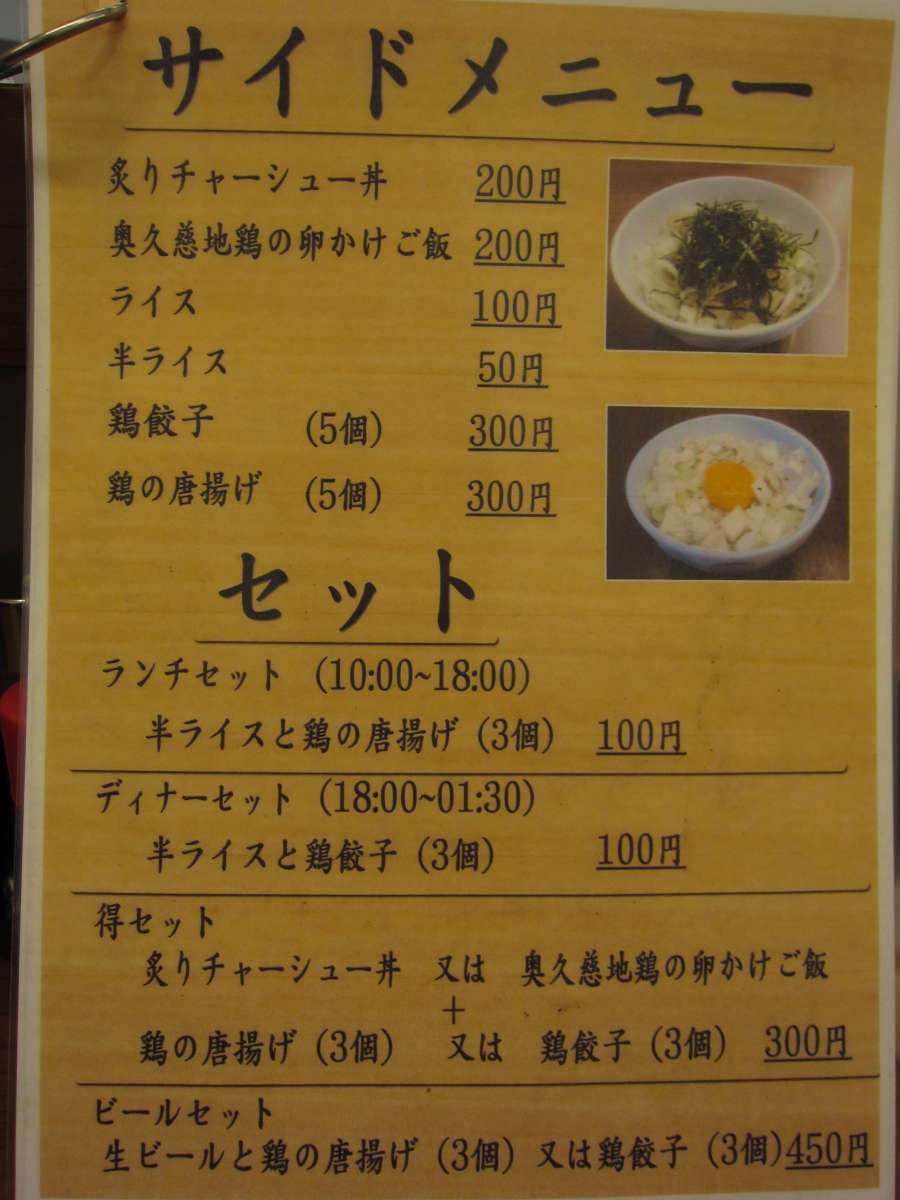 サイドメニュー
炙りチャーシュー丼 200円
奥久慈地鶏の卵かけご飯 200円
ライス 100円
半ライス 50円
鶏餃子 (5個) 300円
鶏の唐揚げ (5個) 300円
セット
ランチセット (10:00~18:00)
半ライスと鶏の唐揚げ (3個) 100円
ディナーセット (18:00~01:30)
半ライスと鶏餃子 (3個) 100円
得セット
炙りチャーシュー丼 又は 奥久慈地鶏の卵かけご飯
+
鶏の唐揚げ (3個) 又は 鶏餃子 (3個) 300円
ビールセット
生ビールと鶏の唐揚げ (3個) 又は鶏餃子 (3個) 450円